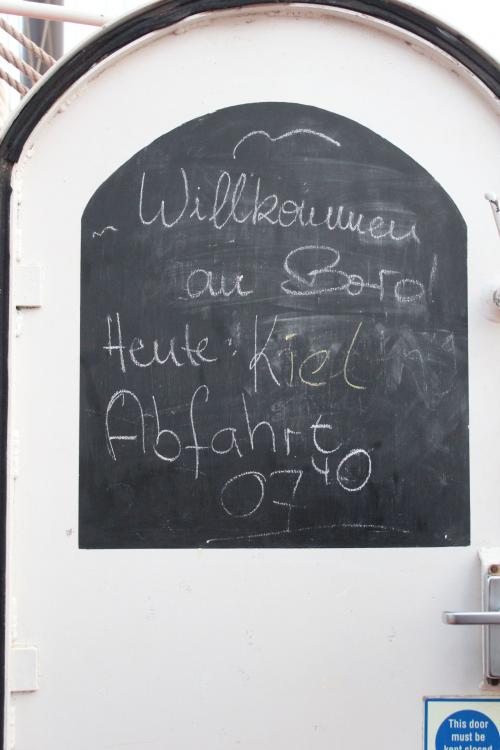 Willkommen
an Bord!
Heute: Kiel
Abfahrt
07⁴⁰
This door
must be
kept closed